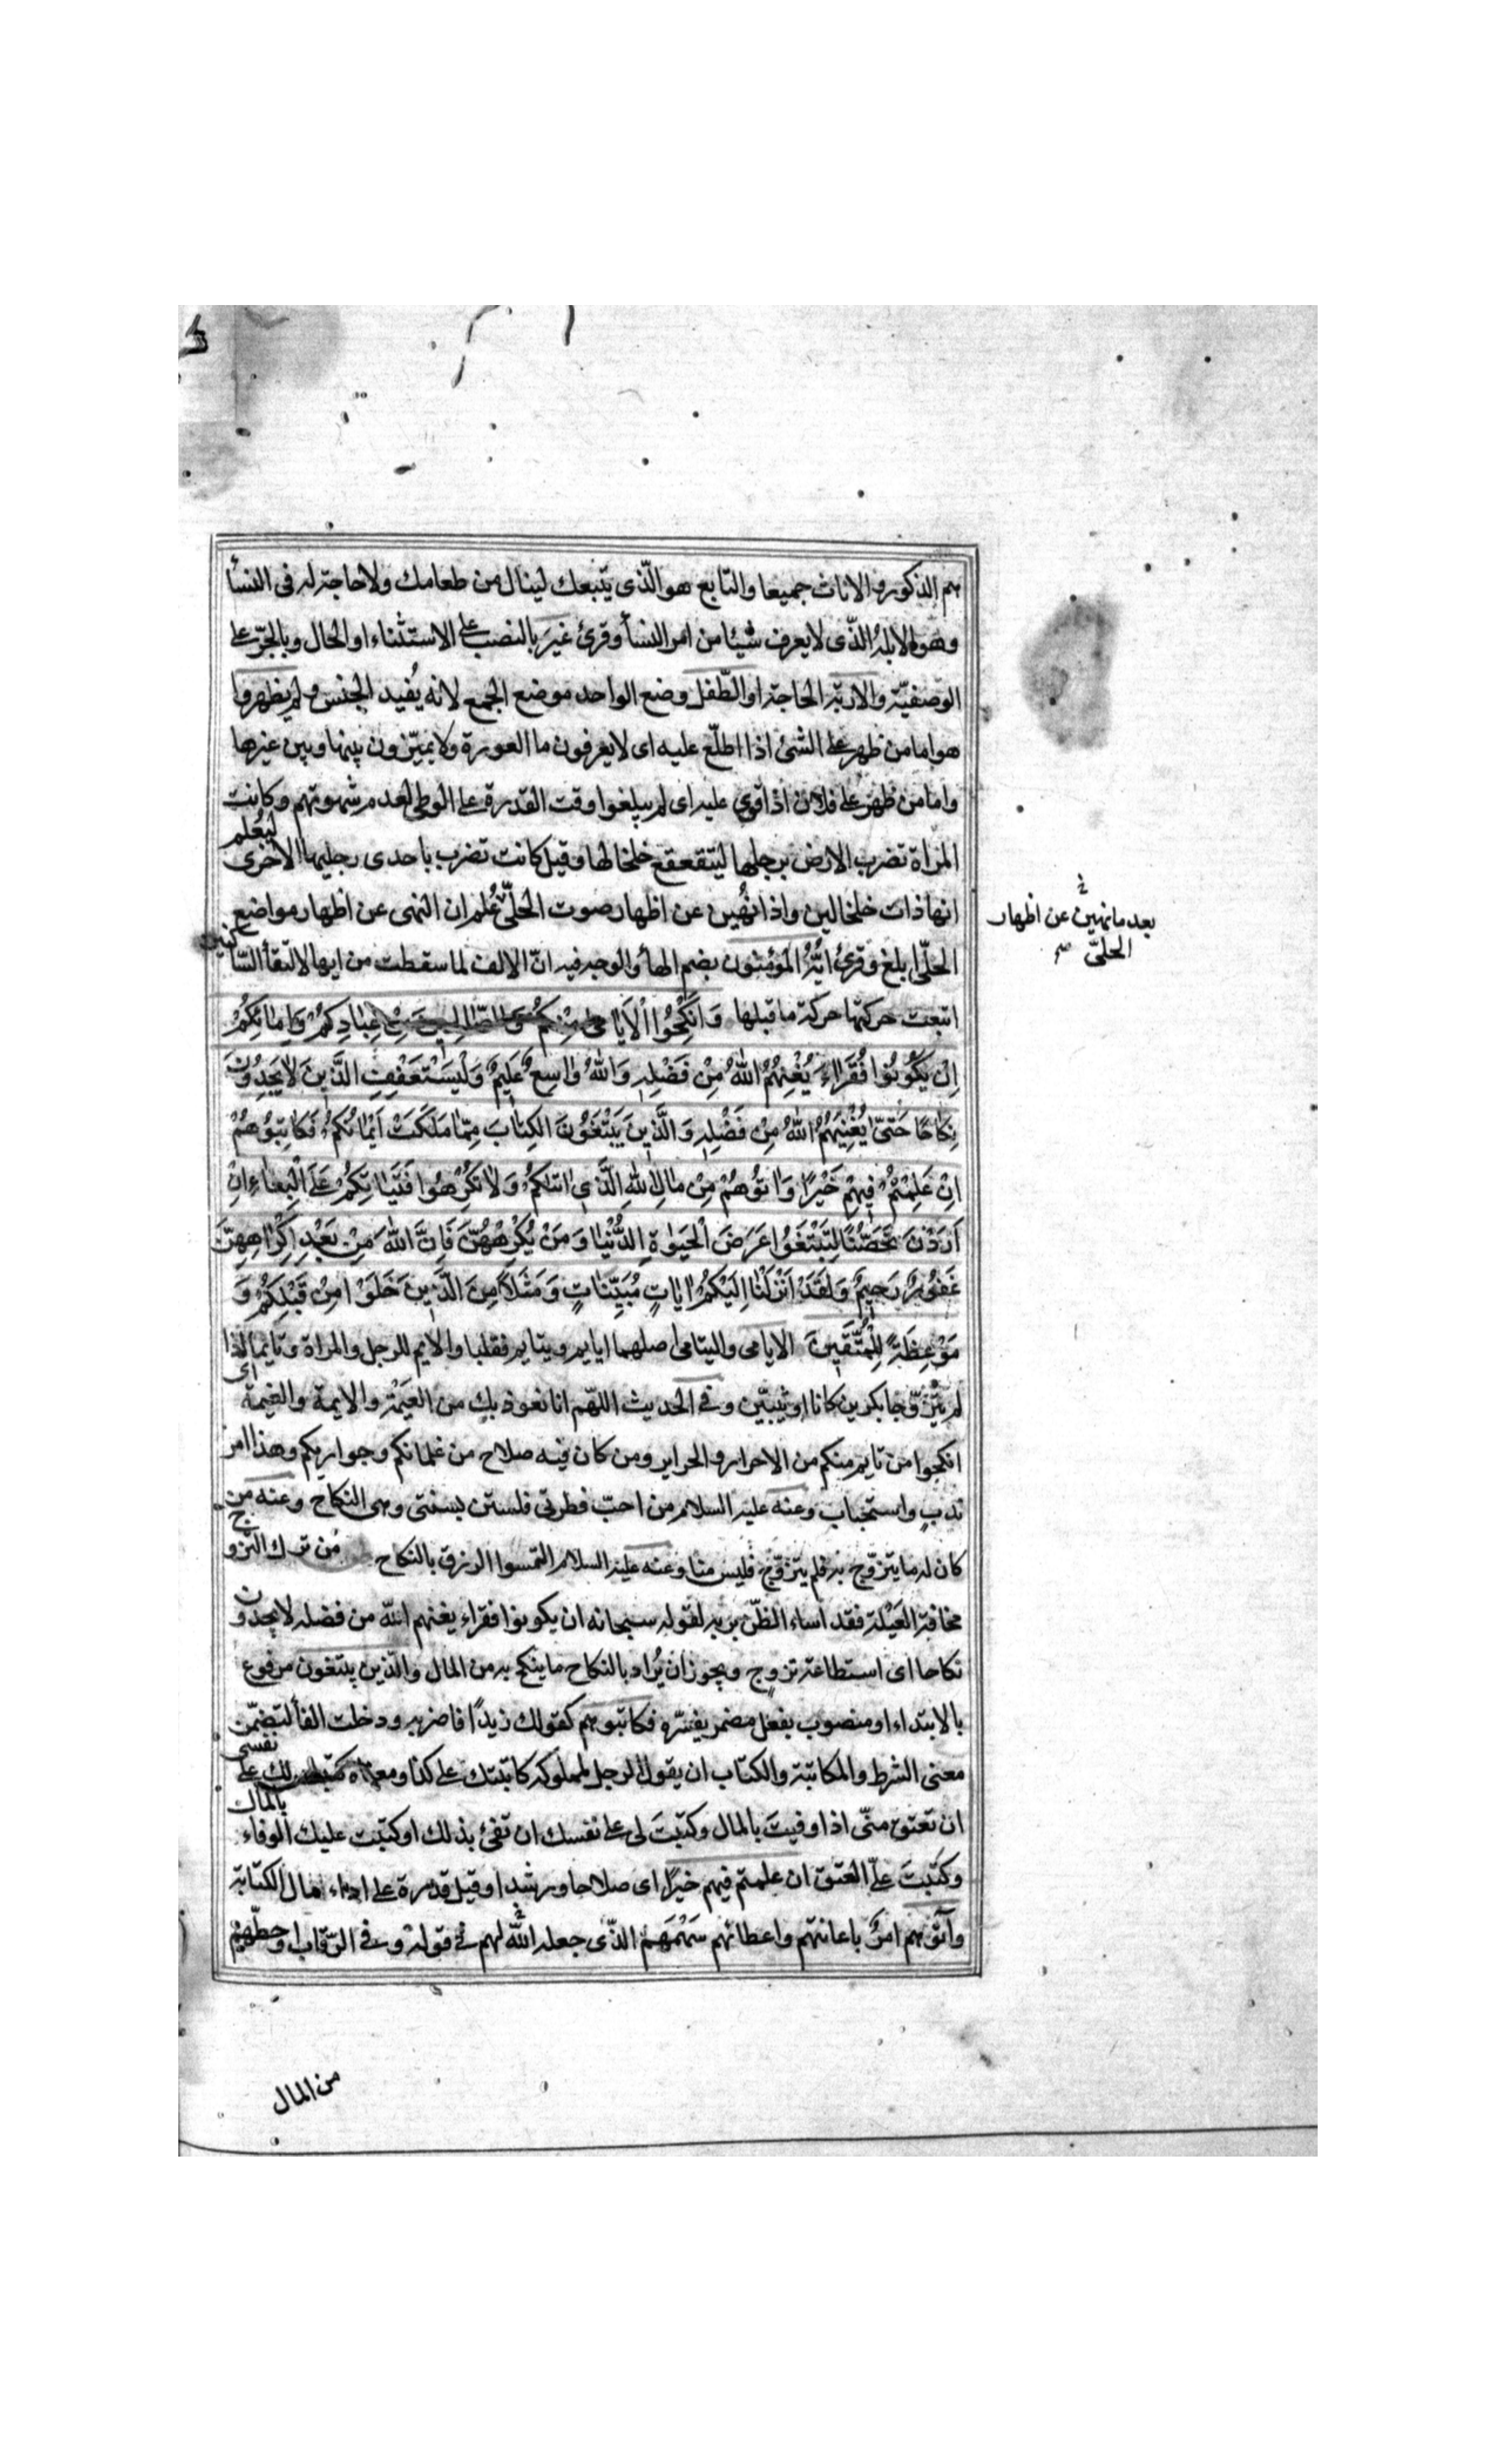 هم الذكور والاناث جميعا والتابع هو الّذى يتبعك لينال من طعامك ولا حاجة له فى النسأ
وهو الابله الذّى لا يعرف شيئا من امر النسأ وقرئ غير بالنصب على الاستثناء او الحال وبالجرّ على
الوصفيّة والاربة الحاجة او الطّفل وضع الواحد موضع الجمع لانه يُفيد الجنس ولم يظهروا
هو اما من ظهر على الشئ اذا اطلّع عليه اى لا يعرفون ما العورة ولا يميّزون بينها وبين غيرها
واما من ظهر على فلان اذا قوى عليه اى لم يبلغوا وقت القدرة على الوطى لعدم شهوتهم وكانت
المرأة تضرب الارض برجلها ليتقعقع خلخالها وقيل كانت تضرب باحدى رجليها الاخرى ليعلم
انها ذات خلخالين واذا نُهين عن اظهار صوت الحلىّ عُلم ان النهى عن اظهار مواضع
بعد ما نهين عن اظهار
الحلىّ
الحلىّ ابلغ وقرئ ايُّهُ المؤمنون بضم الهأ والوجه فيه انّ الالف لما سقطت من ايها لالتقأ السّاكنين
اتبعت حركتها حركة ما قبلها وَاَنْكِحُوا الْاَيَامٰى مِنْكُمْ وَالصّالِحينَ مِنْ عِبٰادِكُمْ وَاِمٰائِكُمْ
اِنْ يَكُونُوا فُقَرٰاءَ يُغْنِهِمُ اللهُ مِنْ فَضْلِهِ وَاللهُ وٰاسِعٌ عَلِيمٌ وَلْيَسْتَعْفِفِ الَّذينَ لاٰ يَجِدُونَ
نِكٰاحًا حَتّىٰ يُغْنِيَهُمُ اللهُ مِنْ فَضْلِهِ وَالَّذينَ يَبْتَغُونَ الكِتٰابَ مِمّٰا مَلَكَتْ اَيْمٰانُكُمْ فَكٰاتِبُوهُمْ
اِنْ عَلِمْتُمْ فيهِمْ خَيْرًا وَاٰتُوهُمْ مِنْ مٰالِ اللهِ الَّذى اٰتٰيكُمْ وَلاٰ تُكْرِهُوا فَتَيٰاتِكُمْ عَلَى الْبِغٰاءِ اِنْ
اَرَدْنَ تَحَصُّنًا لِتَبْتَغُوا عَرَضَ الْحَيٰوةِ الدُّنْيٰا وَمَنْ يُكْرِهْهُنَّ فَاِنَّ اللهَ مِنْ بَعْدِ اِكْرٰاهِهِنَّ
غَفُورٌ رَحيمٌ وَلَقَدْ اَنْزَلْنٰا اِلَيْكُمْ اٰيٰاتٍ مُبَيِّنٰاتٍ وَمَثَلاً مِنَ الَّذينَ خَلَوْا مِنْ قَبْلِكُمْ وَ
مَوْعِظَةً لِلْمُتَّقينَ الايامى واليتامى اصلهما ايايم ويتايم فقلبا والايم للرجل والمراة وتايما اذا
لم يتزوّجا بكرين كانا او ثيبّين وفى الحديث اللّهم انا نعوذ بك من العَيْمَة والايمة والغيمة اى
انكحوا من تايم منكم من الاحرار والحراير ومن كان فيه صلاح من غلمانكم وجواريكم وهذا امر
ندبٍ واستحباب وعنه عليه السلام من احبّ فطرتى فليستن بسنتى وهى النكاح وعنه من
كان له ما يتزوّج به فلم يتزوّج فليس منا وعنه عليه السلام التمسوا الرزق بالنكاح مَن ترك التزوج
مخافة العَيْلة فقد اساء الظنّ بربه لقوله سبحانه ان يكونوا فقراء يغنهم اللّه من فضله لا يجدون
نكاحا اى استطاعة تزوج ويجوز ان يُراد بالنكاح ما ينكح به من المال والذين يبتغون مرفوع
بالابتداء او منصوب بفعل مضمر يفسّره فكاتبوهم كقولك زيدًا فاضربه ودخلت الفأ لتضمّن
معنى الشرط والمكاتبة والكتاب ان يقول الرجل لمملوكه كاتبتك على كذا ومعناه كتبت لك على نفسى
ان تعتق منّى اذا وفيتَ بالمال وكتبْتَ لى على نفسك ان تفئ بذلك او كتبْت عليك الوفاء بالمال
وكتبْتَ علىّ العتق ان علمتم فيهم خيرًا اى صلاحا ورشدا وقيل قدرة على اداء مال الكتابة
وآتوهم امرٌ باعانتهم واعطائهم سَهْمَهم الذّى جعله اللّه لهم فى قوله وفى الرّقاب او حطّهم
من المال